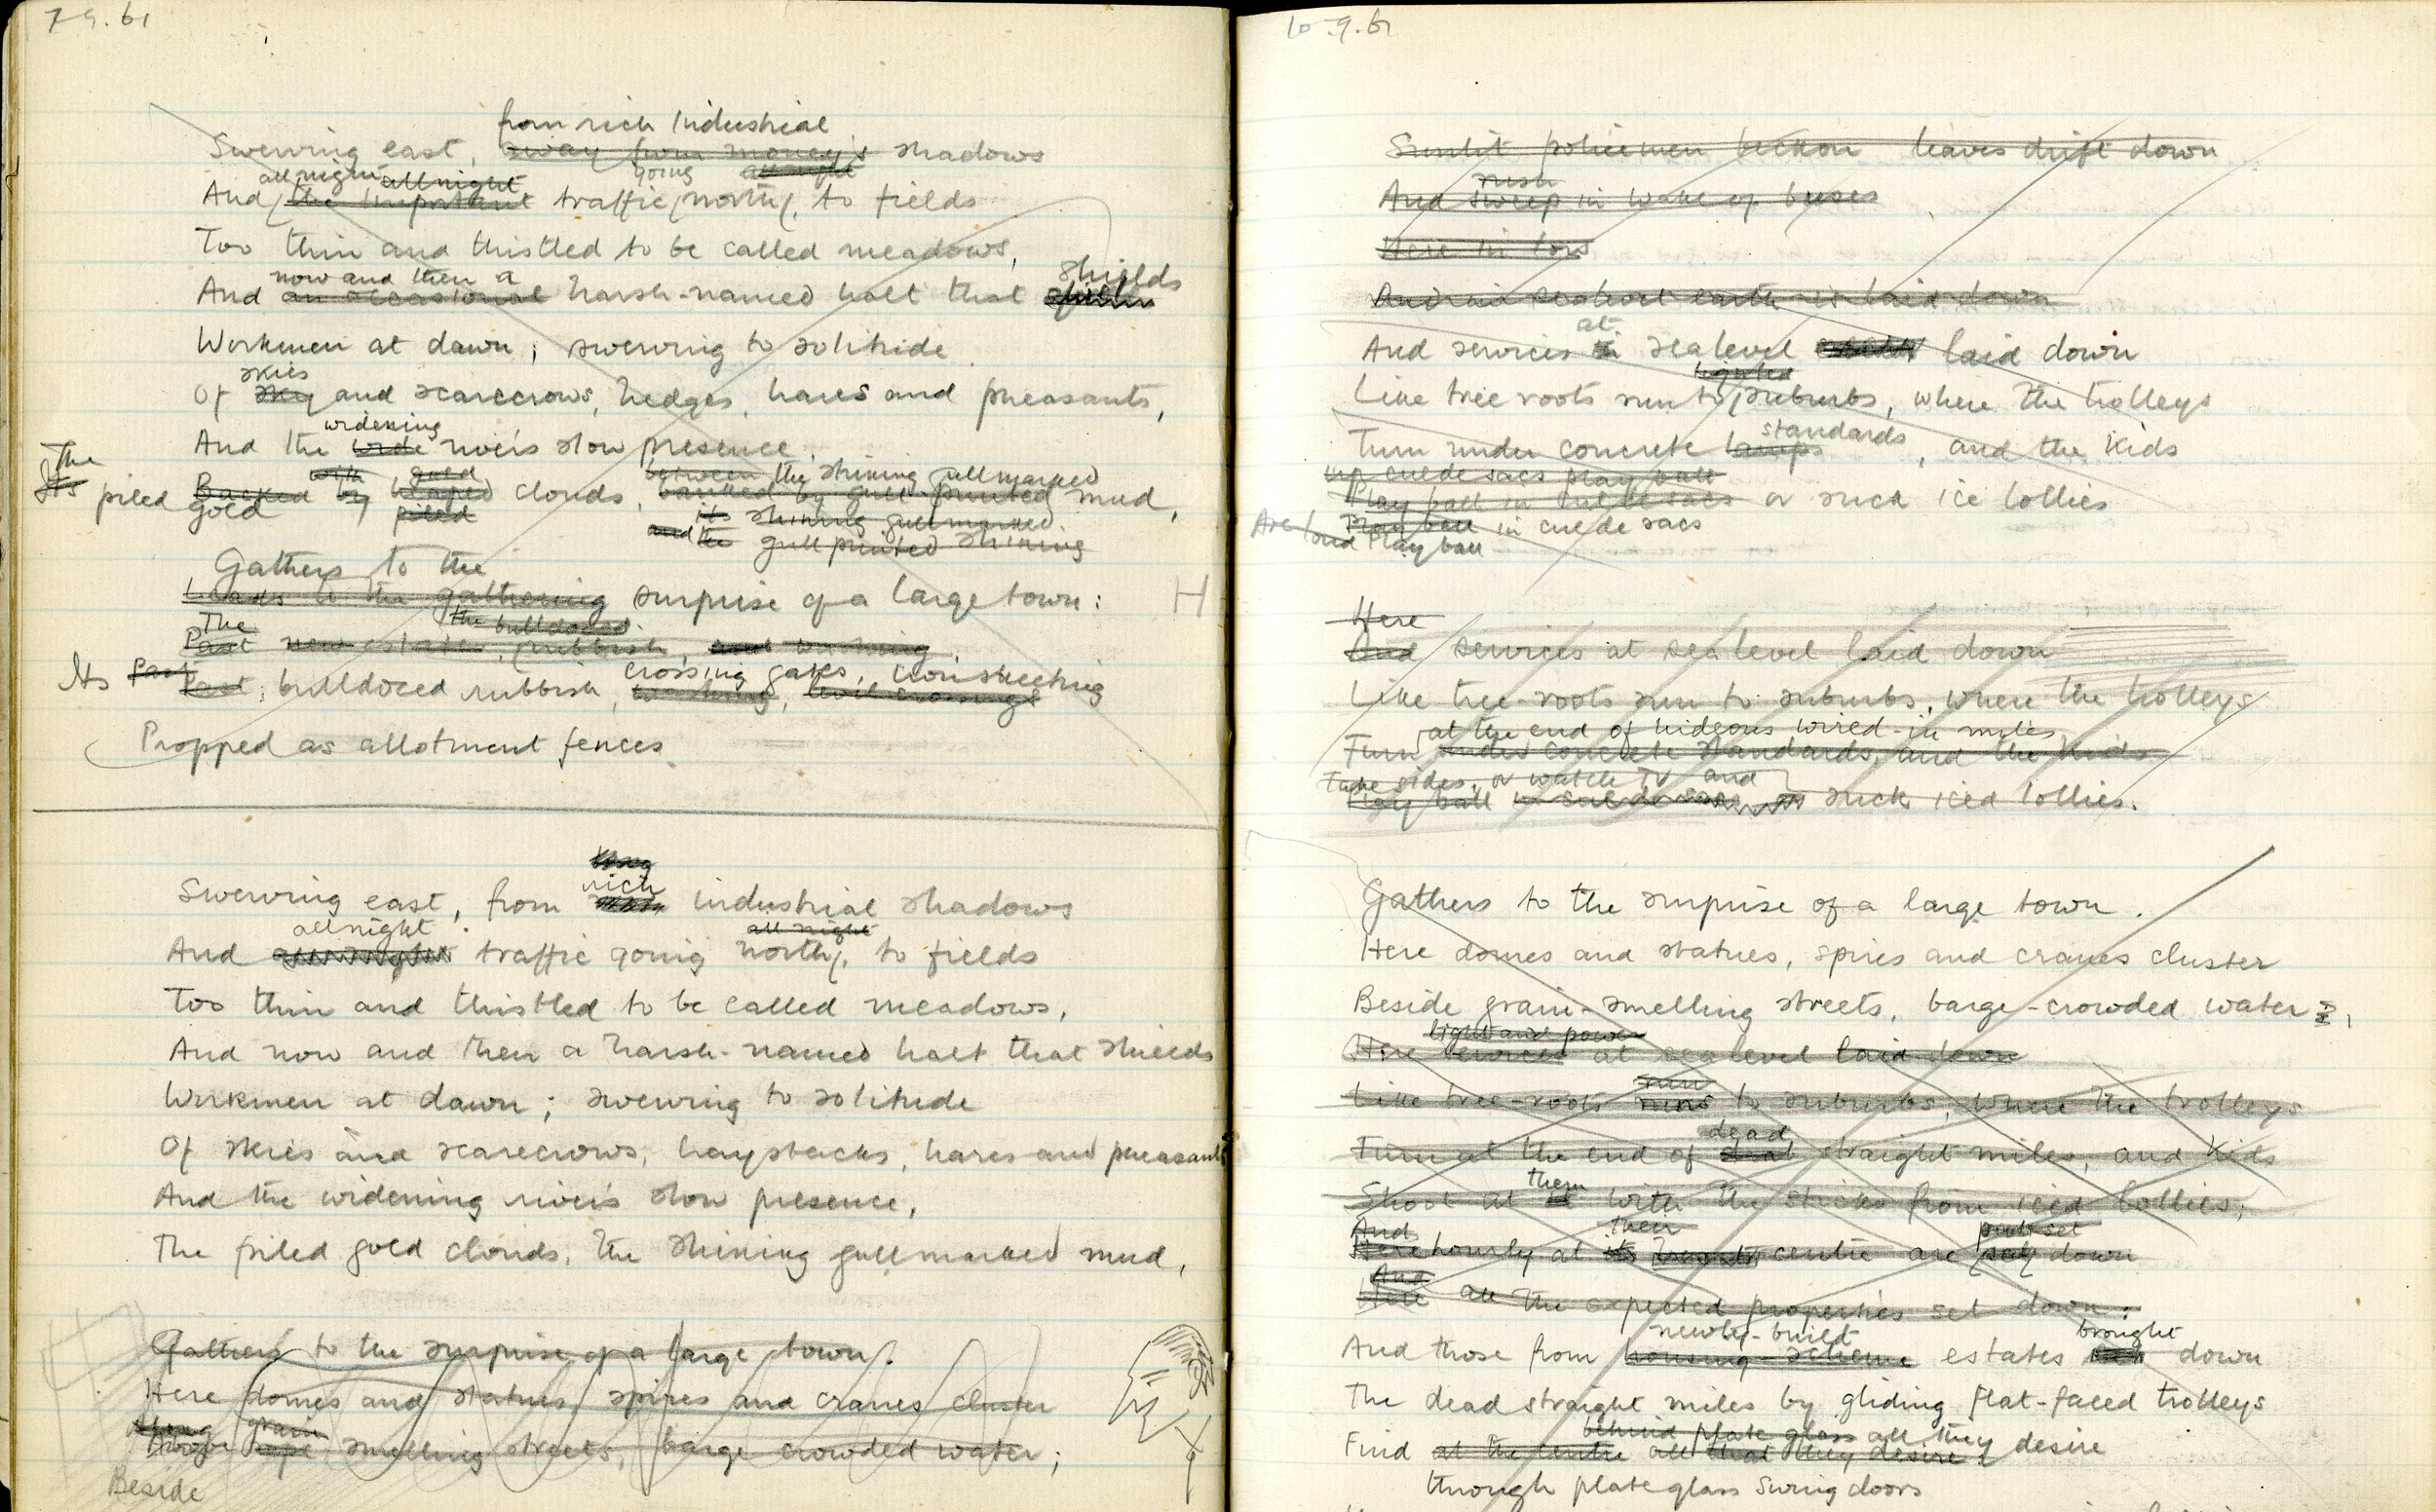 7.9.61
from rich industrial
Swerving east, away from money's shadows
all night all night going all night
And the important traffic north, to fields
Too thin and thistled to be called meadows,
now and then a shields
And an occasional harsh-named halt that
Workmen at dawn; swerving to solitude
skies
Of sky and scarecrows, hedges, hares and pheasants,
widening
And the wide river's slow presence,
The with gold between the shining gull marked
Its piled Backed by heaped clouds, banked by gull-printed mud,
gold piled its shining gull marked
and the gull printed shining
Gathers to the
Leads to the gathering surprise of a large town: H
The the bulldozed
Past new estates, rubbish, and washing
crossing gates, iron sheeting
Its Past Past, bulldozed rubbish, washing, level crossings
Propped as allotment fences
rich
Swerving east, from industrial shadows
all night all night
And traffic going north, to fields
Too thin and thistled to be called meadows,
And now and then a harsh-named halt that shields
Workmen at dawn; swerving to solitude
Of skies and scarecrows, haystacks, hares and pheasants
And the widening river's slow presence,
The piled gold clouds, the shining gullmarked mud,
Gathers to the surprise of a large town.
Here domes and statues, spires and cranes cluster
Along grain
smelling streets, barge crowded water;
Beside
10.9.61
Sunlit policemen beckon leaves drift down
rush
And sweep in wake of buses
Here in
And in sealevel earth is laid down
at
And services in sealevel laid down
lighted
Like tree roots run to suburbs, where the trolleys
standards
Turn under concrete lamps, and the kids
up culdesacs play ball
Play ball in culdesacs or suck ice lollies
Play ball in culdesacs
Play ball
Here
And services at sealevel laid down
Like tree-roots run to suburbs, where the trolleys
at the end of hideous wired-in miles
Turn under concrete standards, and the kids
Take sides, or watch TV and
Play ball in culdesacs, or suck iced lollies.
Gathers to the surprise of a large town.
Here domes and statues, spires and cranes cluster
Beside grain-smelling streets, barge-crowded water,
light and power
Here services at sealevel laid down
run
Like tree-roots runs to suburbs, where the trolleys
dead
Turn at the end of straight miles, and kids
them
Shoot at with the sticks from iced lollies;
And then
Here hourly at its centre are down
And
Here all the expected properties set down:
newly-built brought
And those from housing-scheme estates down
The dead straight miles by gliding flat-faced trolleys
behind plate glass all they
Find at the centre all that they desire: desire
through plateglass swing doors